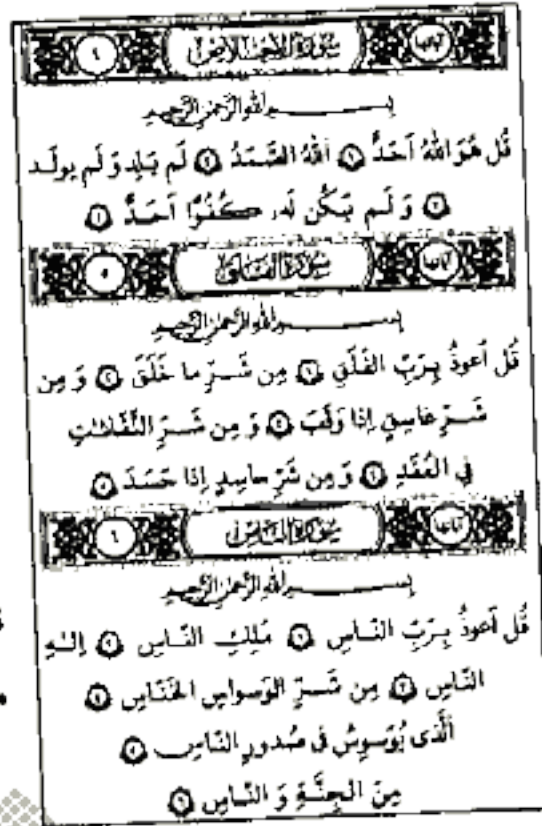 آیاتها سورة الاخلاص ٤
بسم الله الرحمن الرحیم
قُل هُوَ اللهُ اَحَدٌ ١ اَللهُ الصَّمَدُ ٢ لَم یَلِد وَ لَم یولَد
٣ وَ لَم یَکُن لَهُ کُفُوًا اَحَدٌ ٤
آیاتها سورة الفلق ٥
بسم الله الرحمن الرحیم
قُل اَعوذُ بِرَبِّ الفَلَقِ ١ مِن شَرِّ ما خَلَقَ ٢ وَ مِن
شَرِّ غاسِقٍ اِذا وَقَبَ ٣ وَ مِن شَرِّ النَّفّاثاتِ
فِی العُقَدِ ٤ وَ مِن شَرِّ حاسِدٍ اِذا حَسَدَ ٥
آیاتها سورة الناس ٦
بسم الله الرحمن الرحیم
قُل اَعوذُ بِرَبِّ النّاسِ ١ مَلِکِ النّاسِ ٢ اِلٰهِ
النّاسِ ٣ مِن شَرِّ الوَسواسِ الخَنّاسِ ٤
اَلَّذی یُوَسوِسُ فی صُدورِ النّاسِ ٥
مِنَ الجِنَّةِ وَ النّاسِ ٦